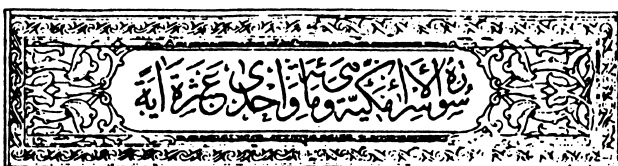 سُورَةُ الْإِسْرَاءِ مَكِّيَّةٌ وَهِيَ مِائَةٌ وَإِحْدَى عَشْرَةَ اٰيَةً